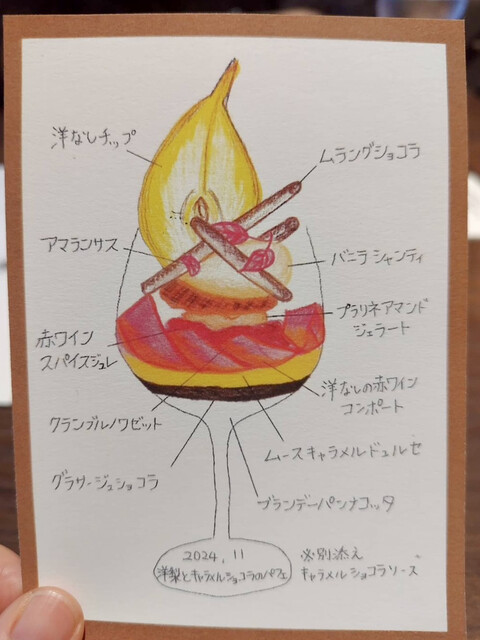 洋なしチップ
ムラングショコラ
アマランサス
バニラシャンティ
プラリネアマンド
ジェラート
赤ワイン
スパイスジュレ
洋なしの赤ワイン
コンポート
クランブルノワゼット
ムースキャラメルドゥルセ
グラサージュショコラ
ブランデーパンナコッタ
2024,11
洋梨とキャラメルショコラのパフェ
※別添え
キャラメルショコラソース